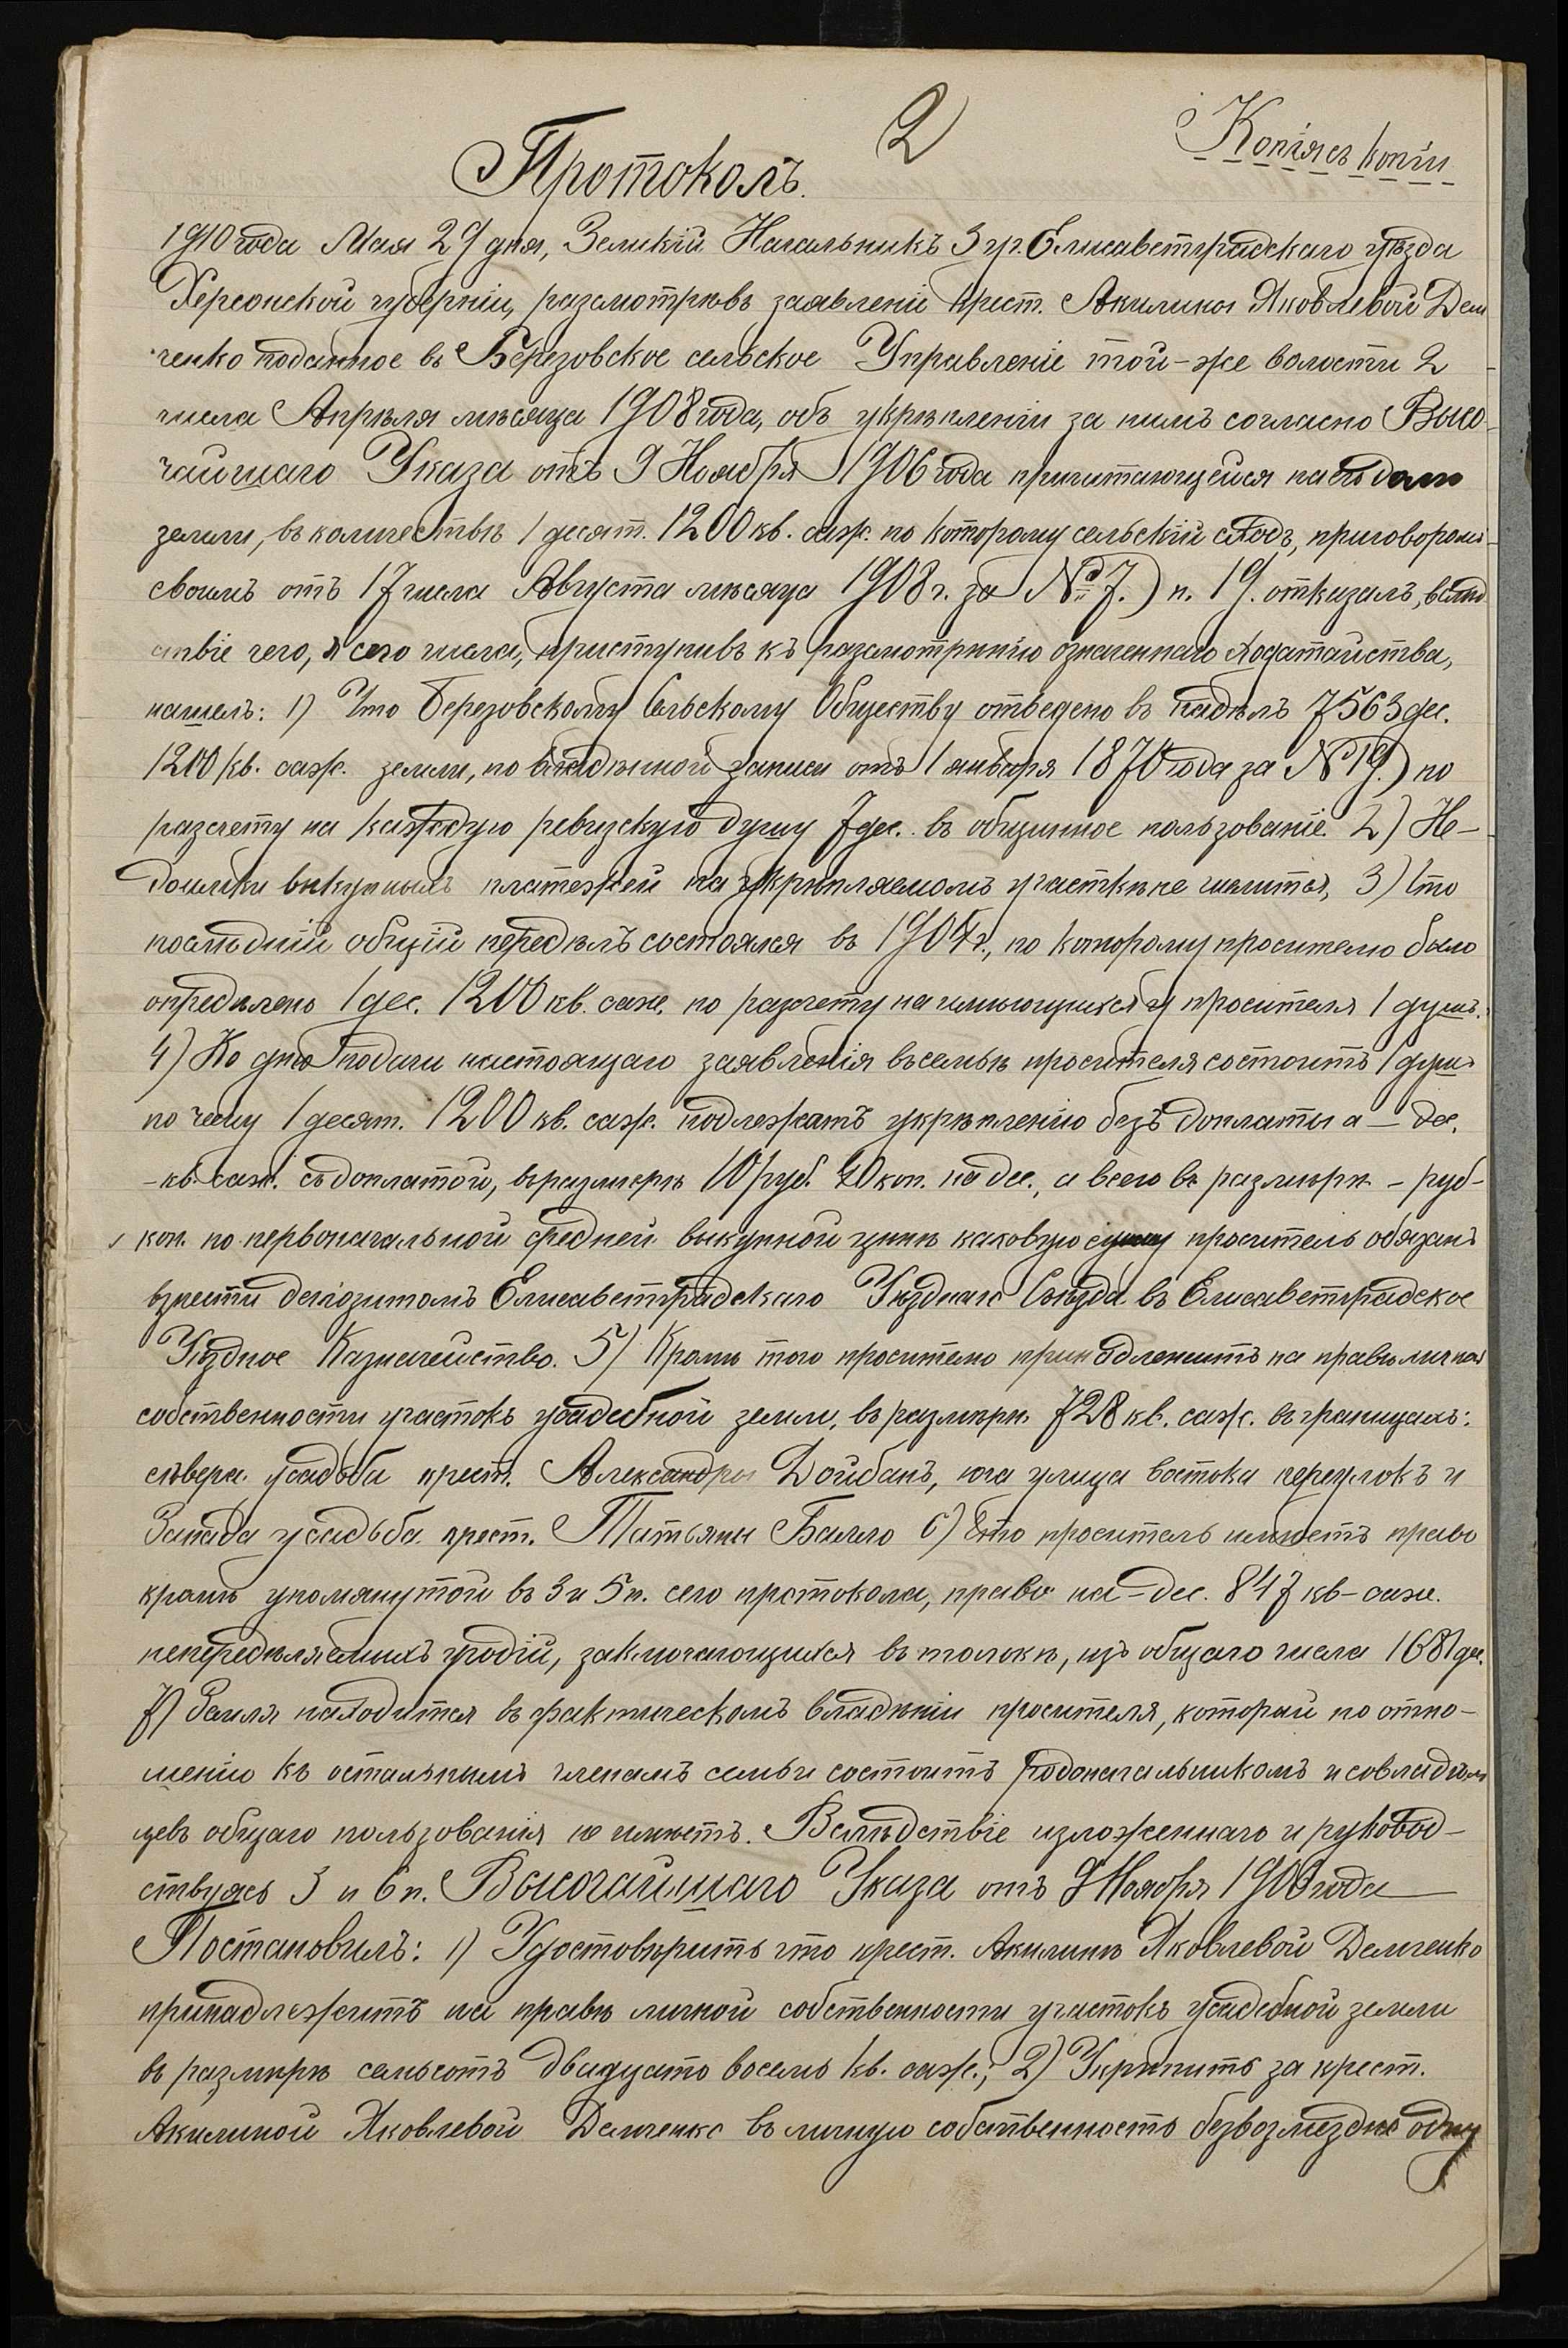 2
Копія съ копіи
Протоколъ.
1910 года Мая 29 дня, Земскій Начальникъ 3 уч. Елисаветградскаго уѣзда
Херсонской губерніи, разсмотрѣвъ заявленіе крест. Акилины Яковлевой Дем
ченко поданное въ Березовское сельское Управленіе той-же волости 2
числа Апрѣля мѣсяца 1908 года, объ укрѣпленіи за нимъ согласно Высо
чайшаго Указа отъ 9 Ноября 1906 года причитающейся на его долю
земли, въ количествѣ 1 десят. 1200 кв. саж. по которому сельскій сходъ, приговоромъ
своимъ отъ 17 числа Августа мѣсяца 1908 г. за № 7.) п. 19. отказалъ, вслѣд
ствіе чего, я сего числа, приступивъ къ разсмотрѣнію означеннаго ходатайства,
нашелъ: 1) Что Березовскому Сельскому Обществу отведено въ надѣлъ 7563 дес.
1200 кв. саж. земли, по владѣнной записи отъ 1 января 1870 года за № 19.) по
разсчету на каждую ревизскую душу 7 дес. въ общинное пользованіе. 2) Не-
доимки выкупныхъ платежей на укрѣпляемомъ участкѣ не числится, 3) Что
послѣдній общій передѣлъ состоялся въ 1904 г., по которому просителю было
опредѣлено 1 дес. 1200 кв. саж. по разсчету на имѣющихся у просителя 1 душъ.
4) Ко дню подачи настоящаго заявленія въ семьѣ просителя состоитъ 1 душъ
по чему 1 десят. 1200 кв. саж. подлежатъ укрѣпленію безъ доплаты а – дес.
– кв. саж. съ доплатой, въ размѣрѣ 10 руб. 20 коп. на дес., а всего въ размѣрѣ – руб –
коп. по первоначальной средней выкупной цѣнѣ каковую сумму проситель обязанъ
взнести депозитомъ Елисаветградскаго Уѣзднаго Съѣзда въ Елисаветградское
Уѣздное Казначейство. 5) Кромѣ того просителю принадлежитъ на правѣ личной
собственности участокъ усадебной земли, въ размѣрѣ 728 кв. саж. въ границахъ:
сѣвера усадьба крест. Александры Дойбанъ, юга улица востока переулокъ и
Запада усадьба крест. Татьяны 6) Что проситель имѣетъ право
кромѣ упомянутой въ 3 и 5 п. сего протокола, право на – дес. 847 кв – саж.
непередѣляемыхъ угодій, заключающихся въ толокѣ, изъ общаго числа 1681 дес.
7) Земля находится въ фактическомъ владѣніи просителя, который по отно-
шенію къ остальнымъ членамъ семьи состоитъ родоначальникомъ и совладѣль
цевъ общаго пользованія не имѣетъ. Вслѣдствіе изложеннаго и руковод-
ствуясь 3 и 6 п. Высочайшаго Указа отъ 9 Ноября 1906 года
Постановилъ: 1) Удостовѣрить что крест. Акилинѣ Яковлевой Демченко
принадлежитъ на правѣ личной собственности участокъ усадебной земли
въ размѣрѣ семьсотъ двадцать восемь кв. саж.; 2) Укрѣпить за крест.
Акилиной Яковлевой Демченко въ личную собственность безвозмездно одну